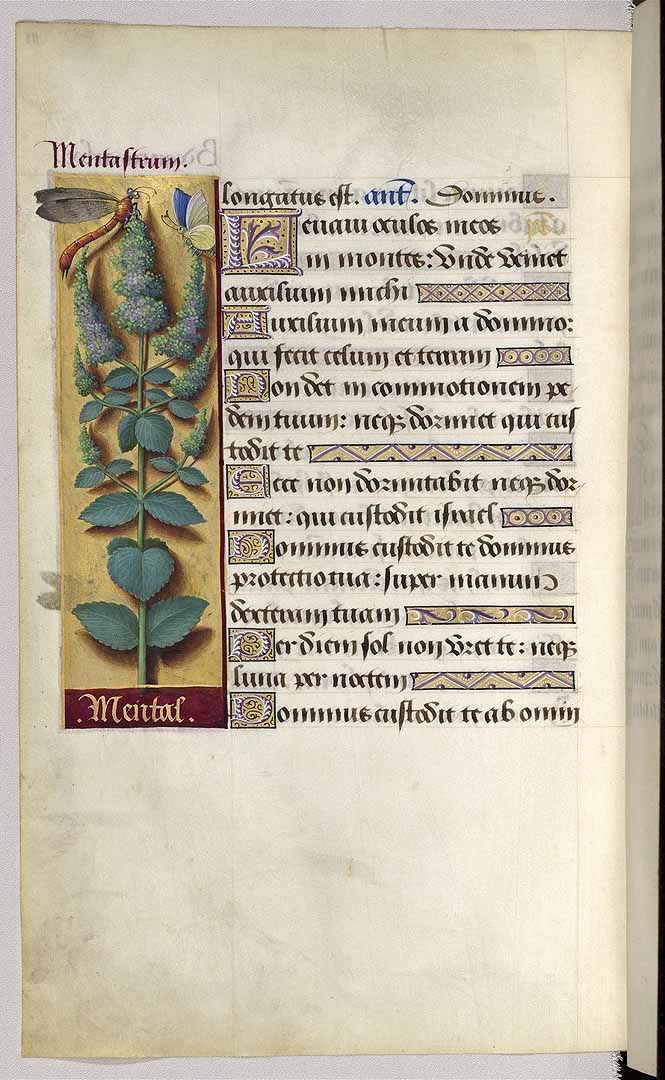 Mentastrum.
longatus est. ant. Dominus.
Levavi oculos meos
in montes: Unde veniet
auxilium michi
Auxilium meum a domino:
qui fecit celum et terram
Non det in commotionem pe-
dem tuum: neq dormiet qui cus
todit te
Ecce non dormitabit neq dor-
miet: qui custodit israel
Dominus custodit te dominus
protectio tua: super manum
dexteram tuam
Per diem sol non vret te: neq
luna per noctem
Dominus custodit te ab omni
.Mental.